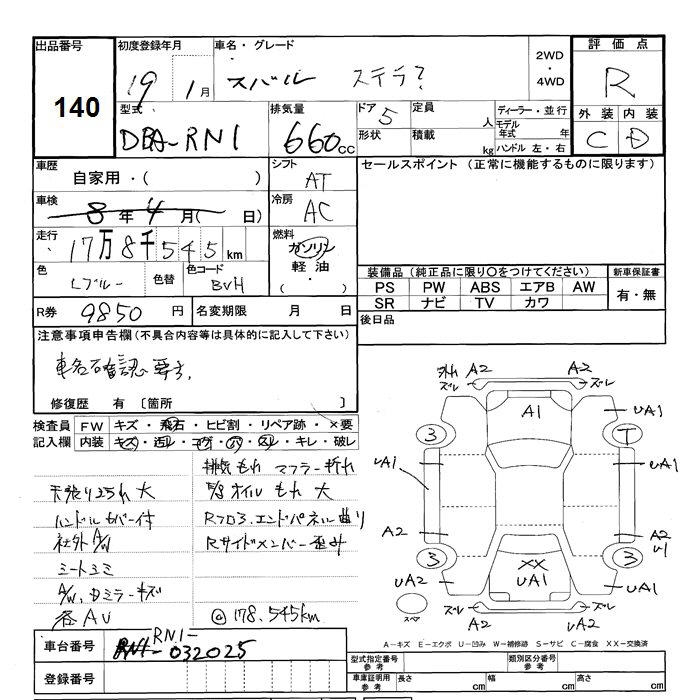 出品番号 初度登録年月 車名・グレード 2WD・4WD 評価点
140 19 1月 スバル ステラ? R
型式 排気量 ドア 定員 ディーラー・並行 外装 内装
DBA-RN1 660cc 5 人 モデル年式 年 C D
形状 積載 kg ハンドル 左・右
車歴 シフト セールスポイント (正常に機能するものに限ります)
自家用・( ) AT
車検 冷房
8年4月( 日) AC
走行 燃料
17万8千545km ガソリン
軽油
・( )
色 色替 色コード 装備品(純正品に限り○をつけてください) 新車保証書
Lブルー BVH PS PW ABS エアB AW 有・無
SR ナビ TV カワ
R券 9850円 名変期限 月 日 後日品
注意事項申告欄(不具合内容等は具体的に記入して下さい)
車名確認要す。
修復歴 有 〔箇所 〕
検査員 FW キズ・飛石・ヒビ割・リペア跡・×要
記入欄 内装 キズ・汚レ・コゲ・穴・スレ・キレ・破レ
排気もれ マフラー折れ
天張り汚れ 大 E/gオイルもれ 大
ハンドルカバー付 Rフロア、エンドパネル曲り
社外A/W Rサイドメンバー歪み
ミートユミ
A/W、Dミラーキズ
各AU ◎178,545km
外れ ズレ A2 A2 ズレ
A1 UA1
3 T
UA1 UA1
A2 A2 U1
3 3
XX
UA2 UA1 UA1
スペア ズレ A2 UA2 ズレ
車台番号 RN1-032025
A-キズ E-エクボ U-凹み W-補修跡 S-サビ C-腐食 XX-交換済
登録番号 型式指定番号 参考 類別区分番号 参考
車庫証明用 参考 長さ cm 幅 cm 高さ cm